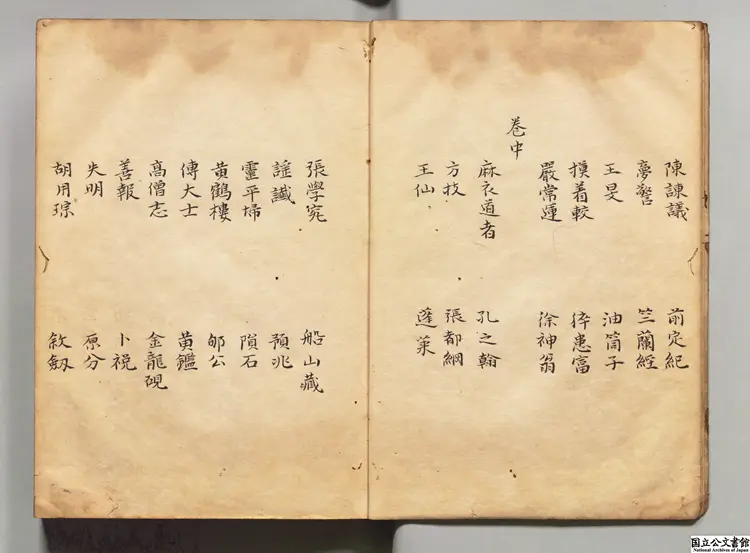 陳諫議 前定紀
夢警 竺蘭經
王旻 油筒子
摸着較 捽患富
嚴常運 徐神翁
卷中
麻衣道者 孔之翰
方技 張都綱
王仙 蓬萊
張學究 船山藏
謡讖 預兆
靈平埽 隕石
黃鶴樓 邹公
傅大士 黃鑑
高僧志 金龍硯
善報 卜祝
失明 原分
胡用琮 敘劔
国立公文書館
National Archives of Japan